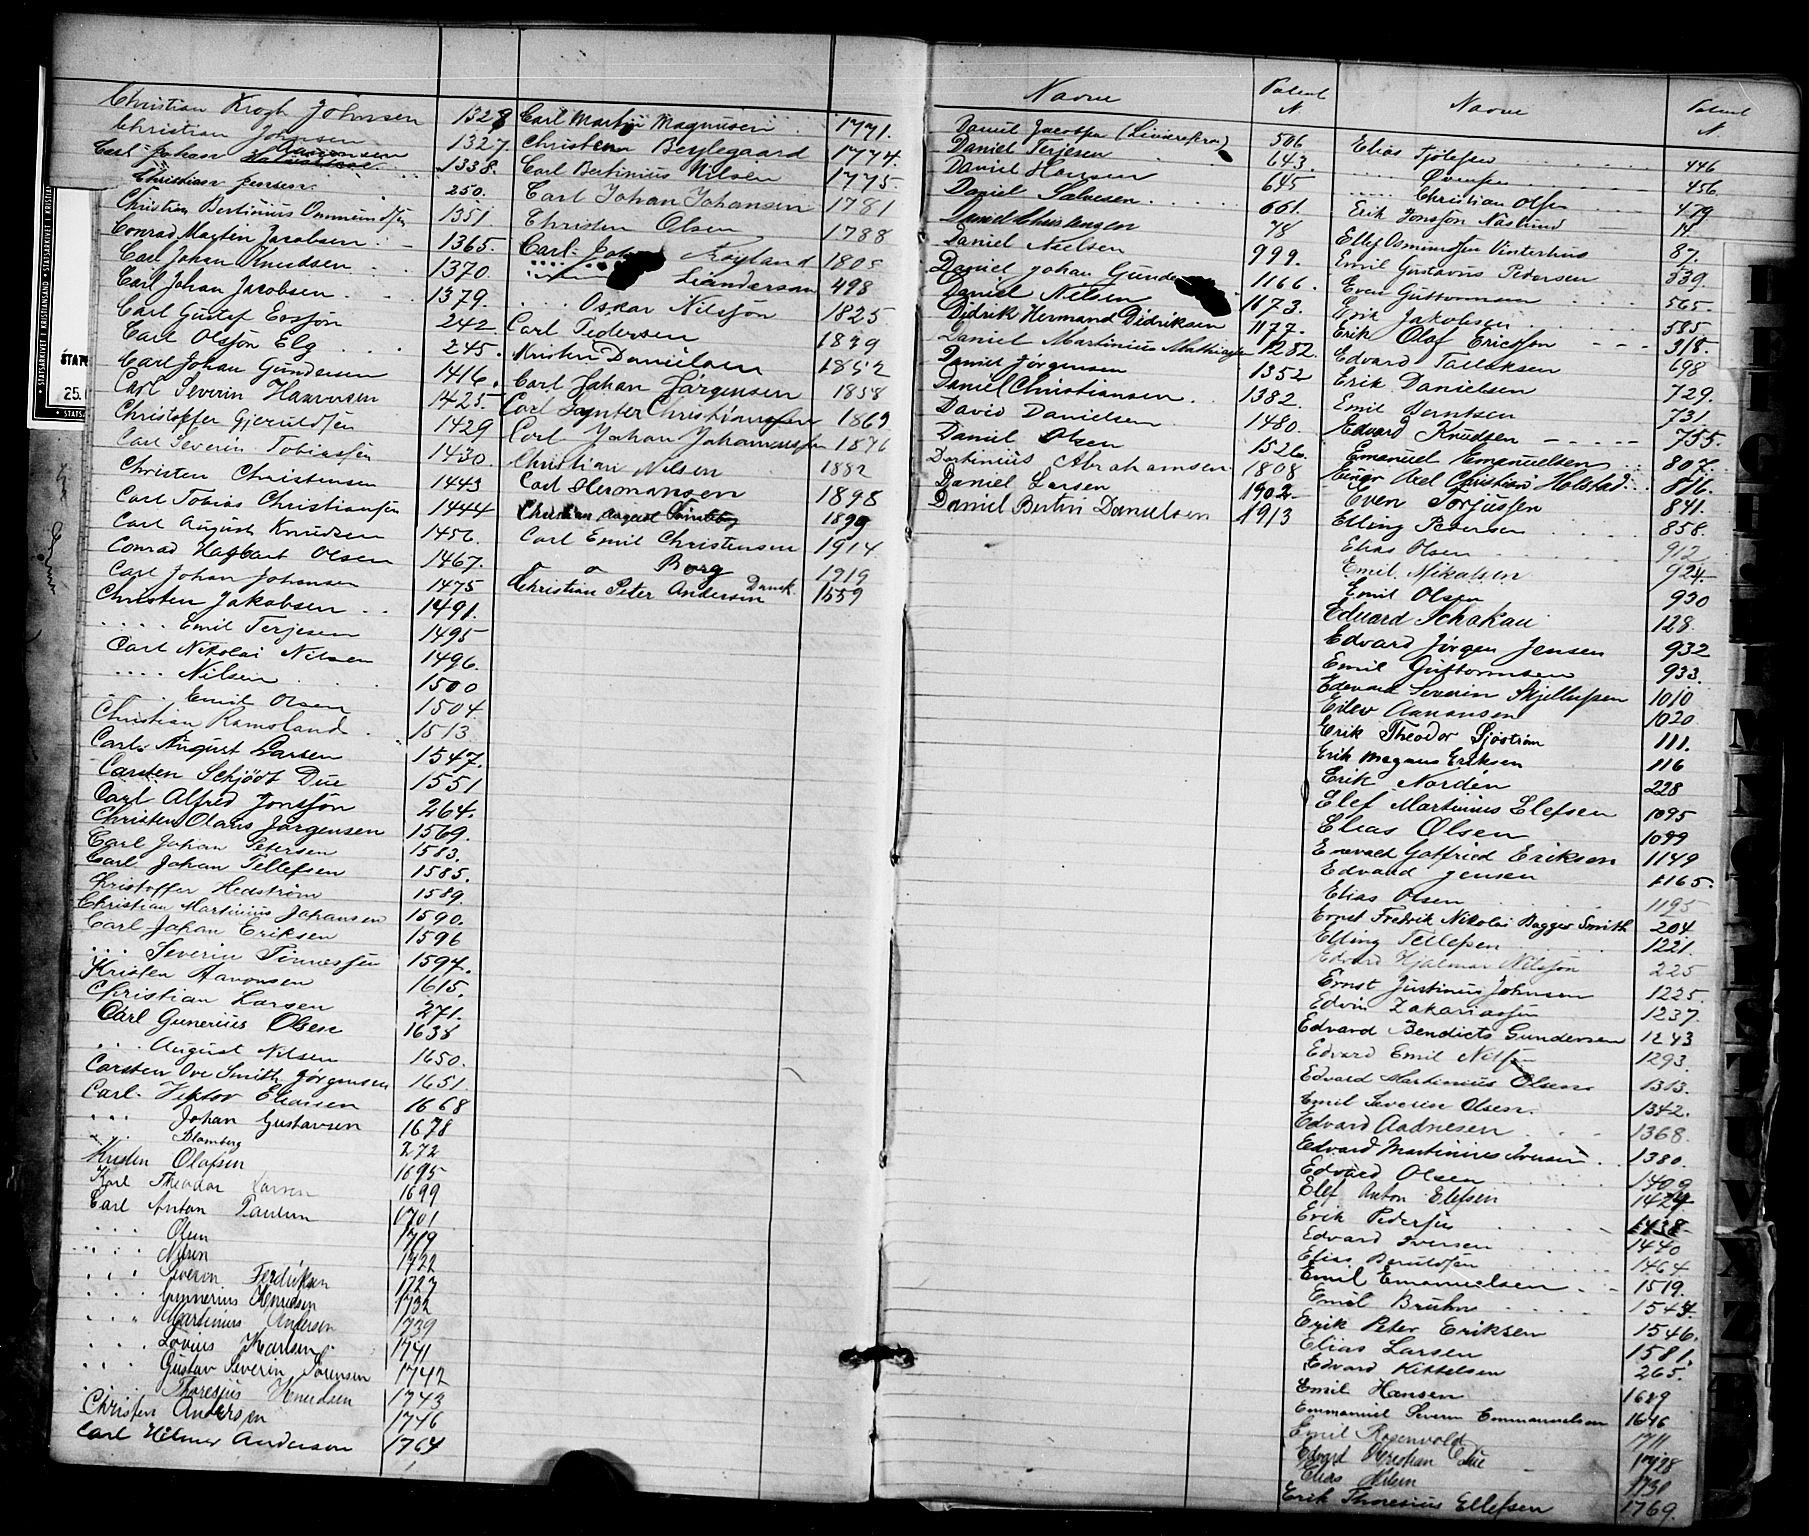 Christian Krogh Johnsen 1328
Christian Johnsen 1327
Carl Johan Aanonsen 1338
Christian Jensen 250
Christian Bertinius Ommundsen 1351
Conrad Martin Jacobsen 1365
Carl Johan Knudsen 1370
Carl Johan Jacobsen 1379
Carl Gustef Ersson 242
Carl Olsson Elg 245
Carl Johan Gundersen 1416
Carl Severin Haaversen 1425
Christoffer Gjeruldsen 1429
Carl Severin Tobiassen 1430
Christen Christensen 1443
Carl Tobias Christiansen 1444
Carl August Knudsen 1456
Conrad Hagbart Olsen 1467
Carl Johan Johansen 1475
Christen Jakobsen 1491
.... Emil Terjesen 1495
Carl Nikolai Nilsen 1496
.... Nilsen 1500
.... Emil Olsen 1504
Christian Ramsland 1513
Carl August Larsen 1547
Carsten Schjödt Due 1551
Carl Alfred Jonsson 264
Christen Olaus Jørgensen 1569
Carl Johan Petersen 1583
Carl Johan Tellefsen 1585
Christoffer Hedström 1589
Christian Martinius Johansen 1590
Carl Johan Eriksen 1596
.... Severin Tönnessen 1597
Kristen Aanonsen 1615
Christian Larsen 271
Carl Gunerius Olsen 1638
.... August Nilsen 1650
Carsten Ove Smith Jørgensen 1651
Carl Viktor Eliassen 1668
.... Johan Gustavsen 1678
.... Blomberg 272
Kristen Olafsen 1695
Karl Theodor Larsen 1699
Carl Anton Paulsen 1701
.... Olsen 1719
.... Nilsen 1722
.... Severin Fredriksen 1727
.... Gunnerius Knudsen 1732
.... Martinius Andersen 1739
.... Lovius Karlsen 1741
.... Gustav Severin Sørensen 1742
.... Thoresius Knudsen 1743
Christen Andersen 1746
Carl Hilmer Anderson 1764
Carl Martin Magnusen 1771
Christen Beylegaard 1774
Carl Bertinius Nilsen 1775
Carl Johan Johansen 1781
Christen Olsen 1788
Carl Johan Røgland 1805
.... Leanderson 498
.... Oskar Nilsson 1825
Carl Pedersen 1839
Kristen Danielsen 1852
Carl Johan Jørgensen 1858
Carl Gynter Christiansen 1869
Carl Johan Johannessen 1876
Christian Nilsen 1882
Carl Hermansen 1898
Christian August 1899
Carl Emil Christensen 1914
" " Borg 1919
Christian Peter Andersen Dansk 1559
Navne Patent N.
Daniel Jacobsen 506
Daniel Terjesen 643
Daniel Hansen 645
Daniel Salvesen 661
David Christensen 78
Daniel Nielsen 999
Daniel Johan Gunder 1166
Daniel Nilsen 1173
Didrik Hermand Didriksen 1177
Daniel Martinius Mathiassen 1282
Daniel Jørgensen 1352
Daniel Christiansen 1382
David Danielsen 1480
Daniel Olsen 1526
Dortinius Abrahamsen 1808
Daniel Larsen 1902
Daniel Bertin Danielsen 1913
Navne Patent N.
Elias Tjølfsen 446
.... Evensen 456
.... Christian Olsen 479
Erik Jonsson Näslund 14
Ellef Osmundsen Vinterhus 87
Emil Gustavus Pedersen 539
Even Guttormsen 565
Erik Jakobsen 585
Erik Olof Ericsson 318
Edvard Tallaksen 698
Erik Danielsen 729
Emil Berntsen 731
Edvard Knudsen 755
Emanuel Emanuelsen 807
Einar Axel Christian Holstad 816
Even Torjussen 841
Elling Pedersen 858
Elias Olsen 912
Emil Mikalsen 924
Emil Olsen 930
Eduard Schakau 128
Edvard Jørgen Jensen 932
Emil Guttormsen 933
Edevard Severin Skjellefsen 1010
Eilev Aanansen 1020
Erik Theodor Sjöström 111
Erik Magnus Eriksen 116
Erik Nordén 228
Elef Martinius Elefsen 1095
Elias Olsen 1099
Enevald Gotfried Eriksen 1149
Edvard Jensen 1165
Elias Olsen 1195
Ernst Fredrik Nikolai Bagger Smith 204
Elling Tellefsen 1221
Edvard Hjalmar Nilsson 225
Ernst Justinius Johnsen 1225
Edvin Zakariassen 1237
Edvard Bendicts Gundersen 1243
Edvard Emil Nilsen 1293
Edvard Martinius Olsen 1313
Emil Severin Olsen 1342
Edvard Aadnesen 1368
Edvard Martinius Iversen 1380
Edvard Olsen 1409
Elef Anton Elefsen 1424
Erik Pedersen 1438
Edvard Iversen 1440
Elias Beruldsen 1464
Emil Emanuelsen 1519
Emil Bruhn 1544
Erik Peter Eriksen 1546
Elias Larsen 1581
Edvard Kittelsen 265
Emil Hansen 1629
Emmanuel Severin Emmanuelsen 1646
Emil Rosenvold 1711
Edvard Kristian Due 1728
Elias Nilsen 1730
Erik Thoresius Ellefsen 1769